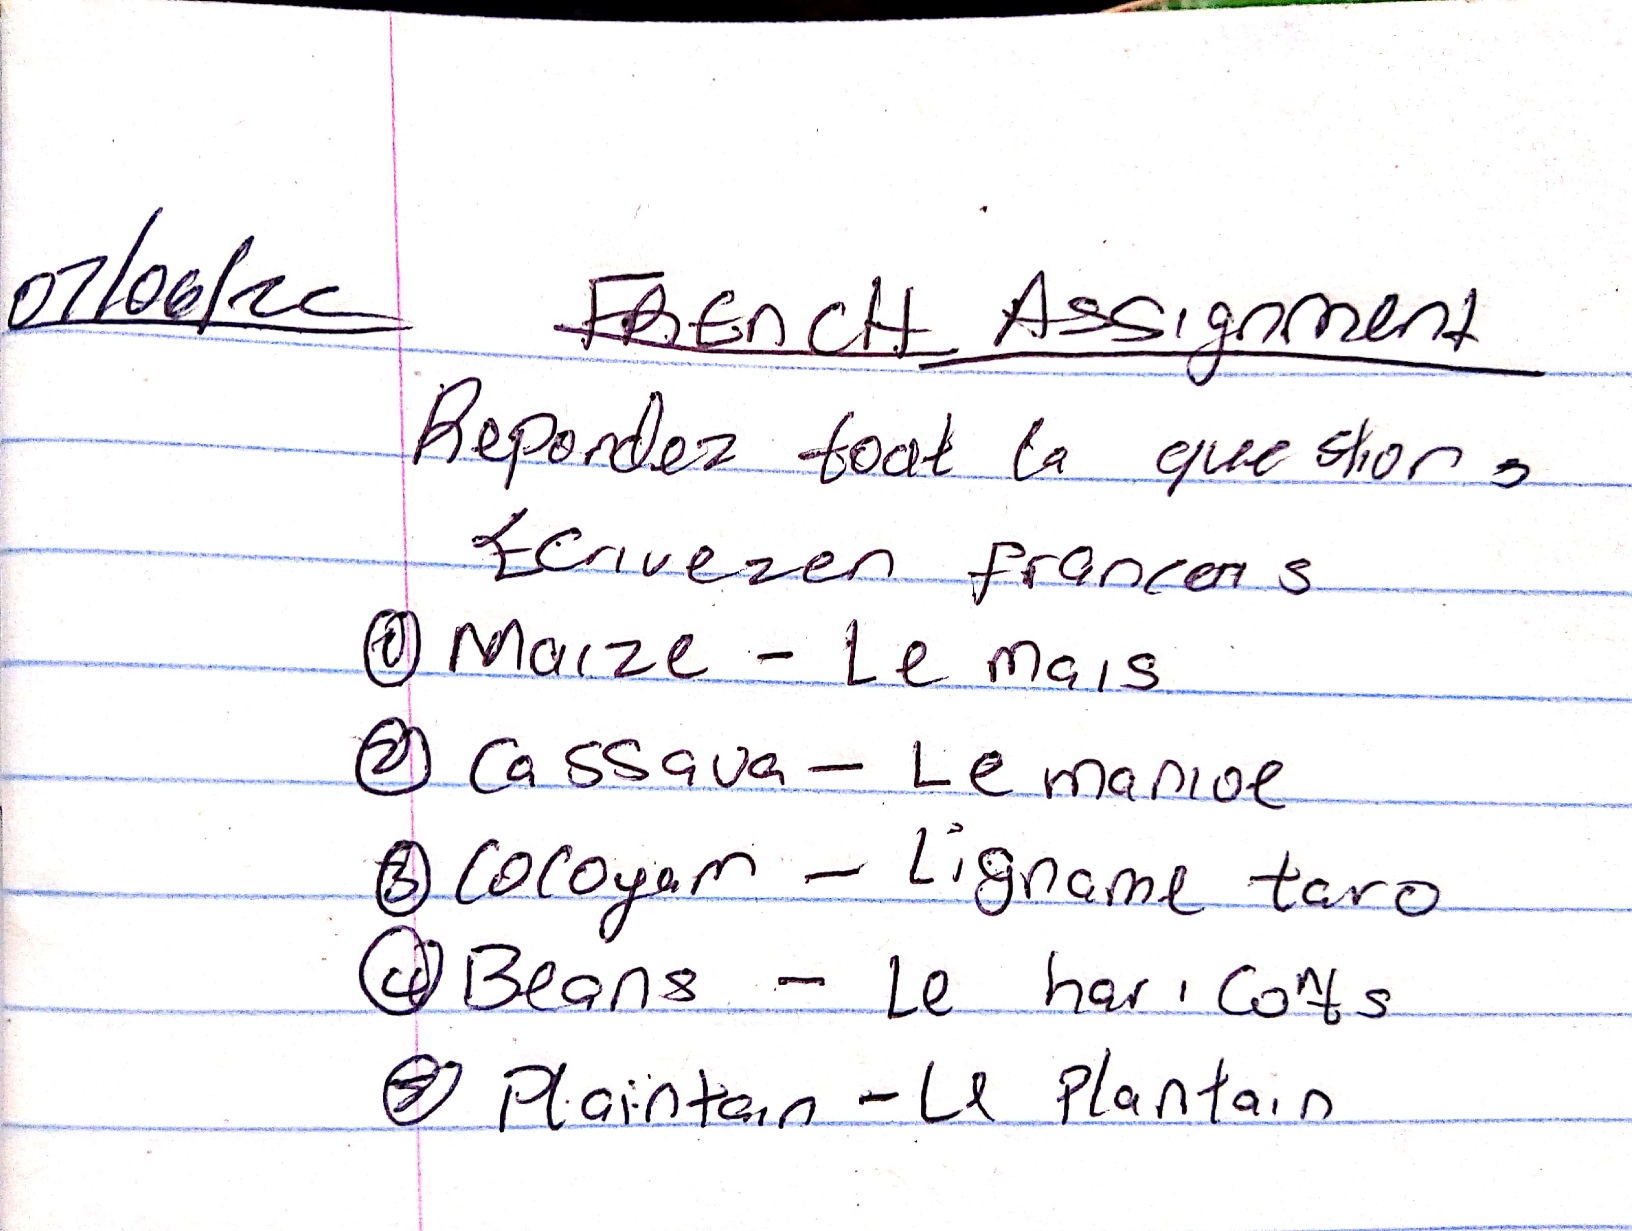 07/06/22 FRENCH Assignment
Repondez tout la question,
Ecrivezen francais
① Maize - Le mais
② Cassava - Le manioe
③ Cocoyam - L'igname taro
④ Beans - Le haricots
⑤ Plaintain - Le Plantain